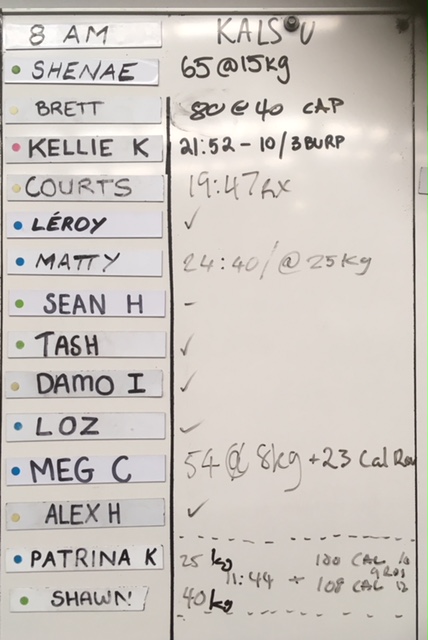 8 AM KALSU
SHENAE 65@15kg
BRETT 80@40 CAP
KELLIE K 21:52 - 10/3BURP
COURTS 19:47 RX
LÉROY ✓
MATTY 24:40/@25kg
SEAN H -
TASH ✓
DAMO I ✓
LOZ ✓
MEG C 54@8kg +23 Cal Row
ALEX H ✓
PATRINA K 25 kg 11:44 100 CAL
SHAWN 40kg 108 CAL 12